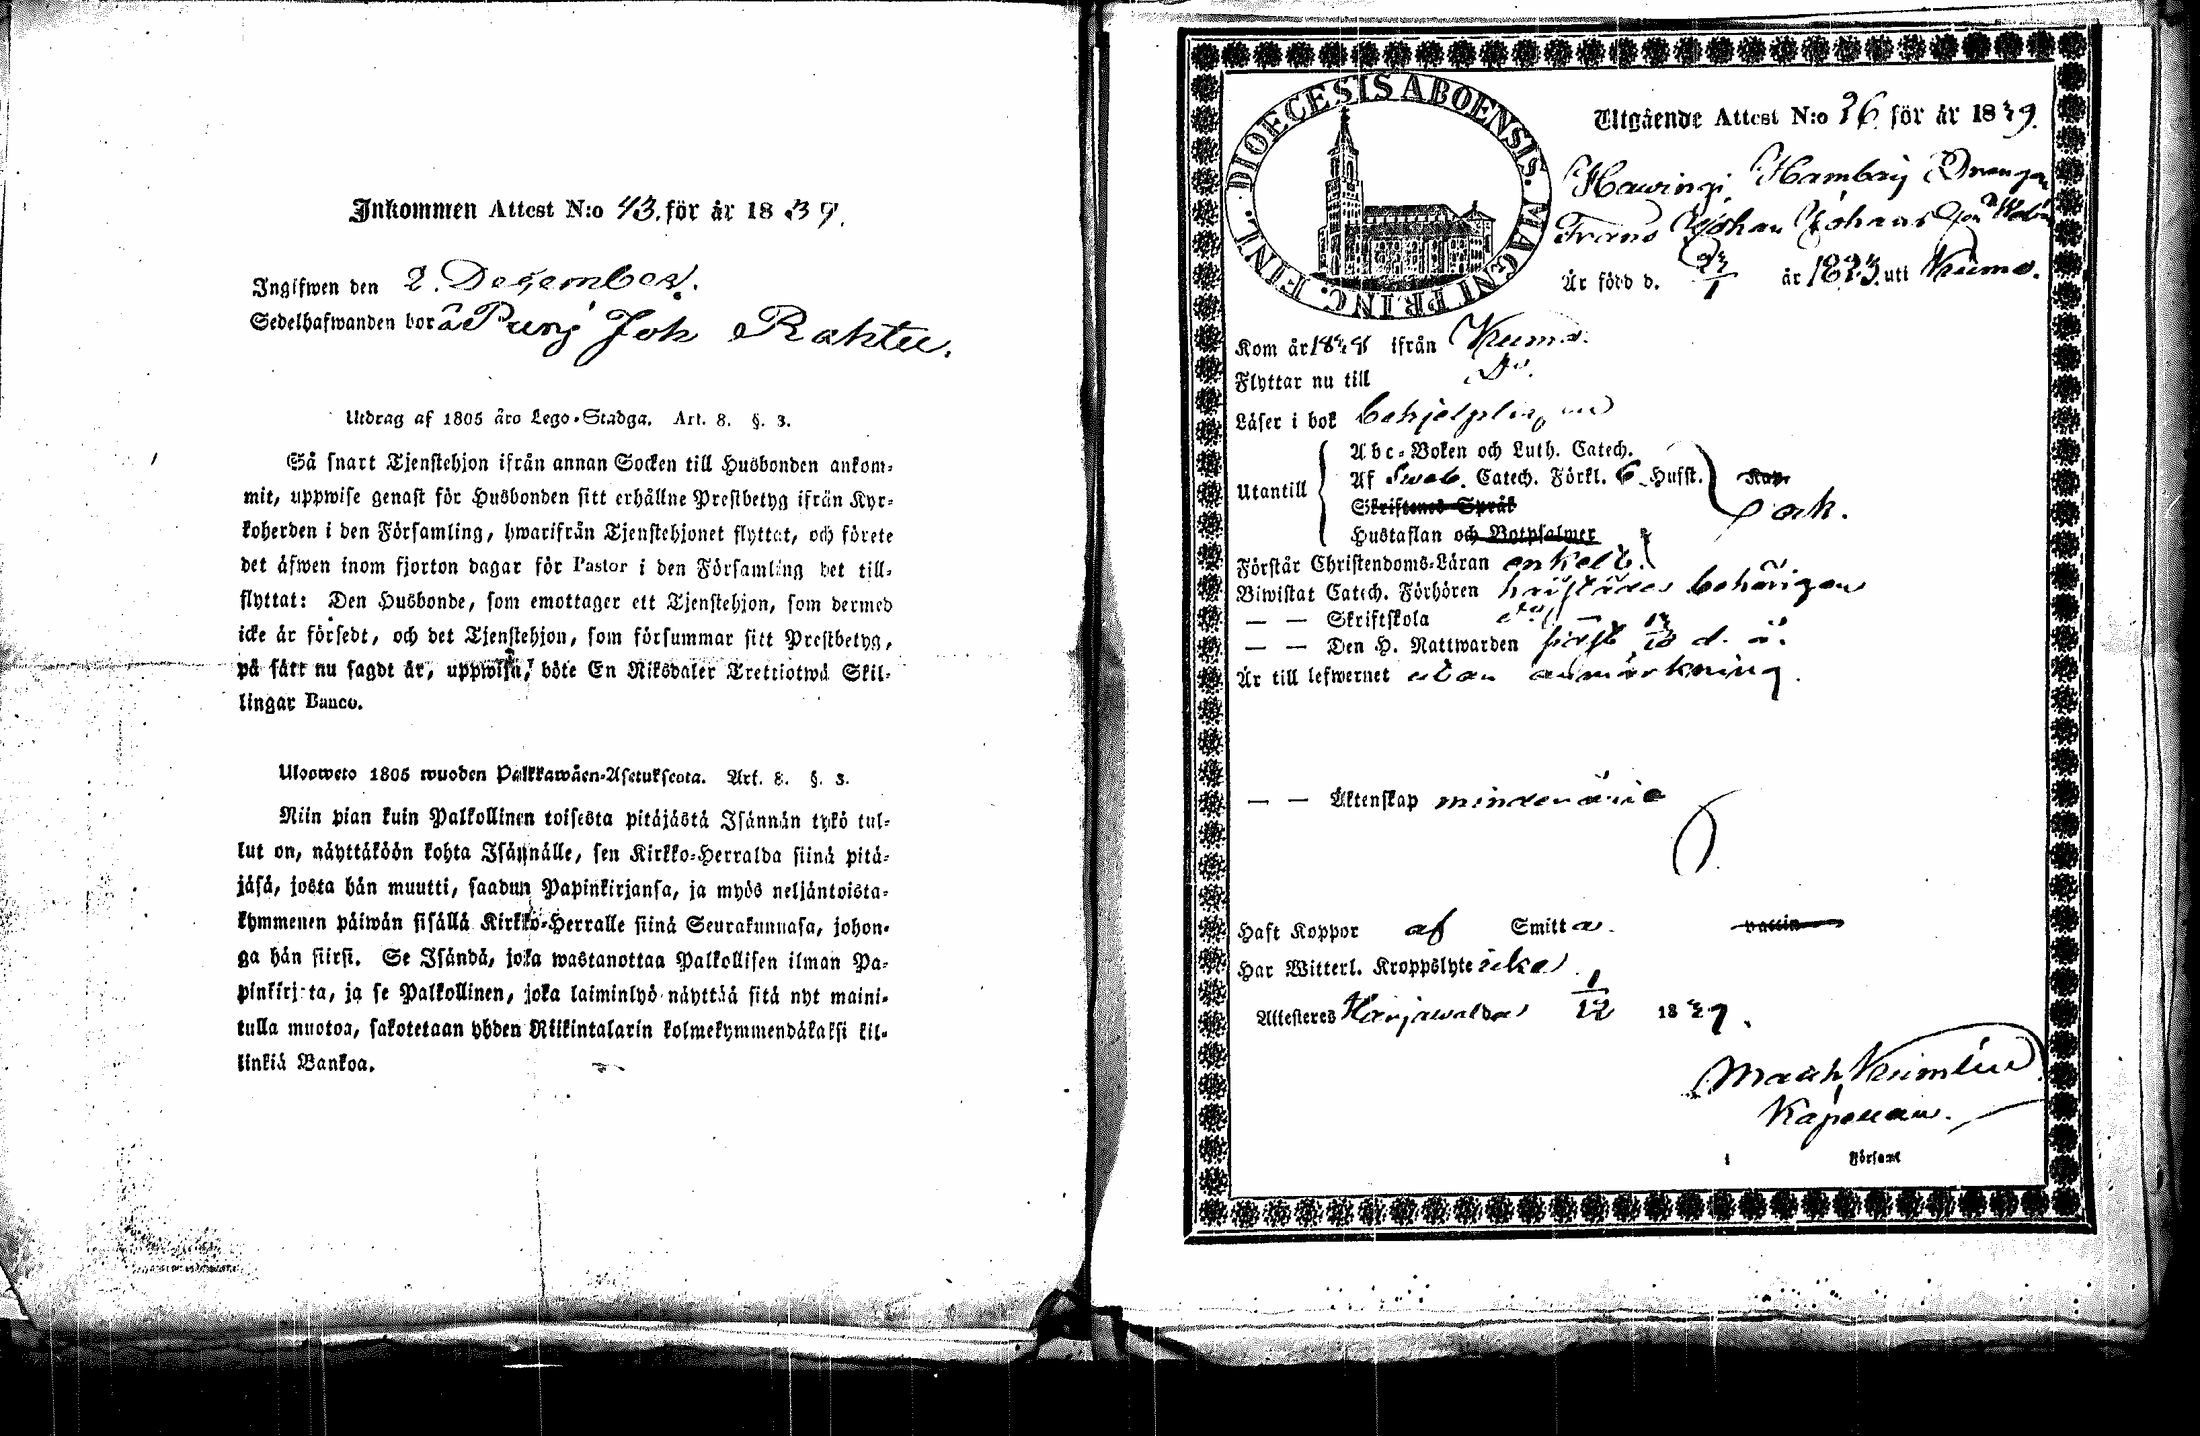 Inkommen Attest N:o 43. för år 1839.
Ingifwen den 2. December.
Sedelhafwanden bor å Pung Joh Rahtu.
Utdrag af 1805 års Lego-Stadga. Art. 8. §. 3.
Så snart Tjenstehjon ifrån annan Socken till Husbonden ankom-
mit, uppwise genast för Husbonden sitt erhållne Prestbetyg ifrån Kyr-
koherden i den Församling, hwarifrån Tjenstehjonet flyttat, och förete
det äfwen inom fjorton dagar för Pastor i den Församling det till-
flyttat: Den Husbonde, som emottager ett Tjenstehjon, som dermed
icke är försedt, och det Tjenstehjon, som försummar sitt Prestbetyg,
på sätt nu sagdt är, uppwisa, böte En Riksdaler Trettiotwå Skil-
lingar Banco.
Ulosweto 1805 wuoden Palkkawäen-Asetuksesta. Art. 8. §. 3.
Niin pian kuin Palkollinen toisesta pitäjästä Isännän tykö tul-
lut on, näyttäköön kohta Isännälle, sen Kirkko-Herralda siinä pitä-
jäsä, josta hän muutti, saadun Papinkirjansa, ja myös neljäntoista-
kymmenen päiwän sisällä Kirkko-Herralle siinä Seurakunnasa, johon-
ga hän siirsi. Se Isändä, joka wastanottaa Palkollisen ilman Pa-
pinkirjata, ja se Palkollinen, joka laiminlyö näyttää sitä nyt maini-
tulla muotoa, sakotetaan yhden Riikintalarin kolmekymmendäkaksi kil-
linkiä Bankoa.
DIOECESIS ABOENSIS. MAGNI PRINC. FINL.
Utgående Attest N:o 36. för år 1839.
Hawingi Hambrij Drengen
Frans Johan Johans Son
Är född d. 23/1 år 1823. uti Kumo.
Kom år 1838 ifrån Kumo.
Flyttar nu till Do.
Läser i bok behjelpligen
Utantill
Abc-Boken och Luth. Catech.
Af Sweb. Catech. Förkl. 6. Hufst.
Skriftenes Språk
Hustaflan och Botpsalmer
Förstår Christendoms-Läran enkelt.
Biwistat Catech. Förhören behörigen
— — Skriftskola do
— — Den H. Nattwarden först 13/10 d. å.
Är till lefwernet utan anmärkning.
— — Äktenskap minderårig
Haft Koppor af Smitta.
Har Witterl. Kroppslyte icke
Attesteres Harjawalda 1/12 1839.
Kapellan.
i Församl